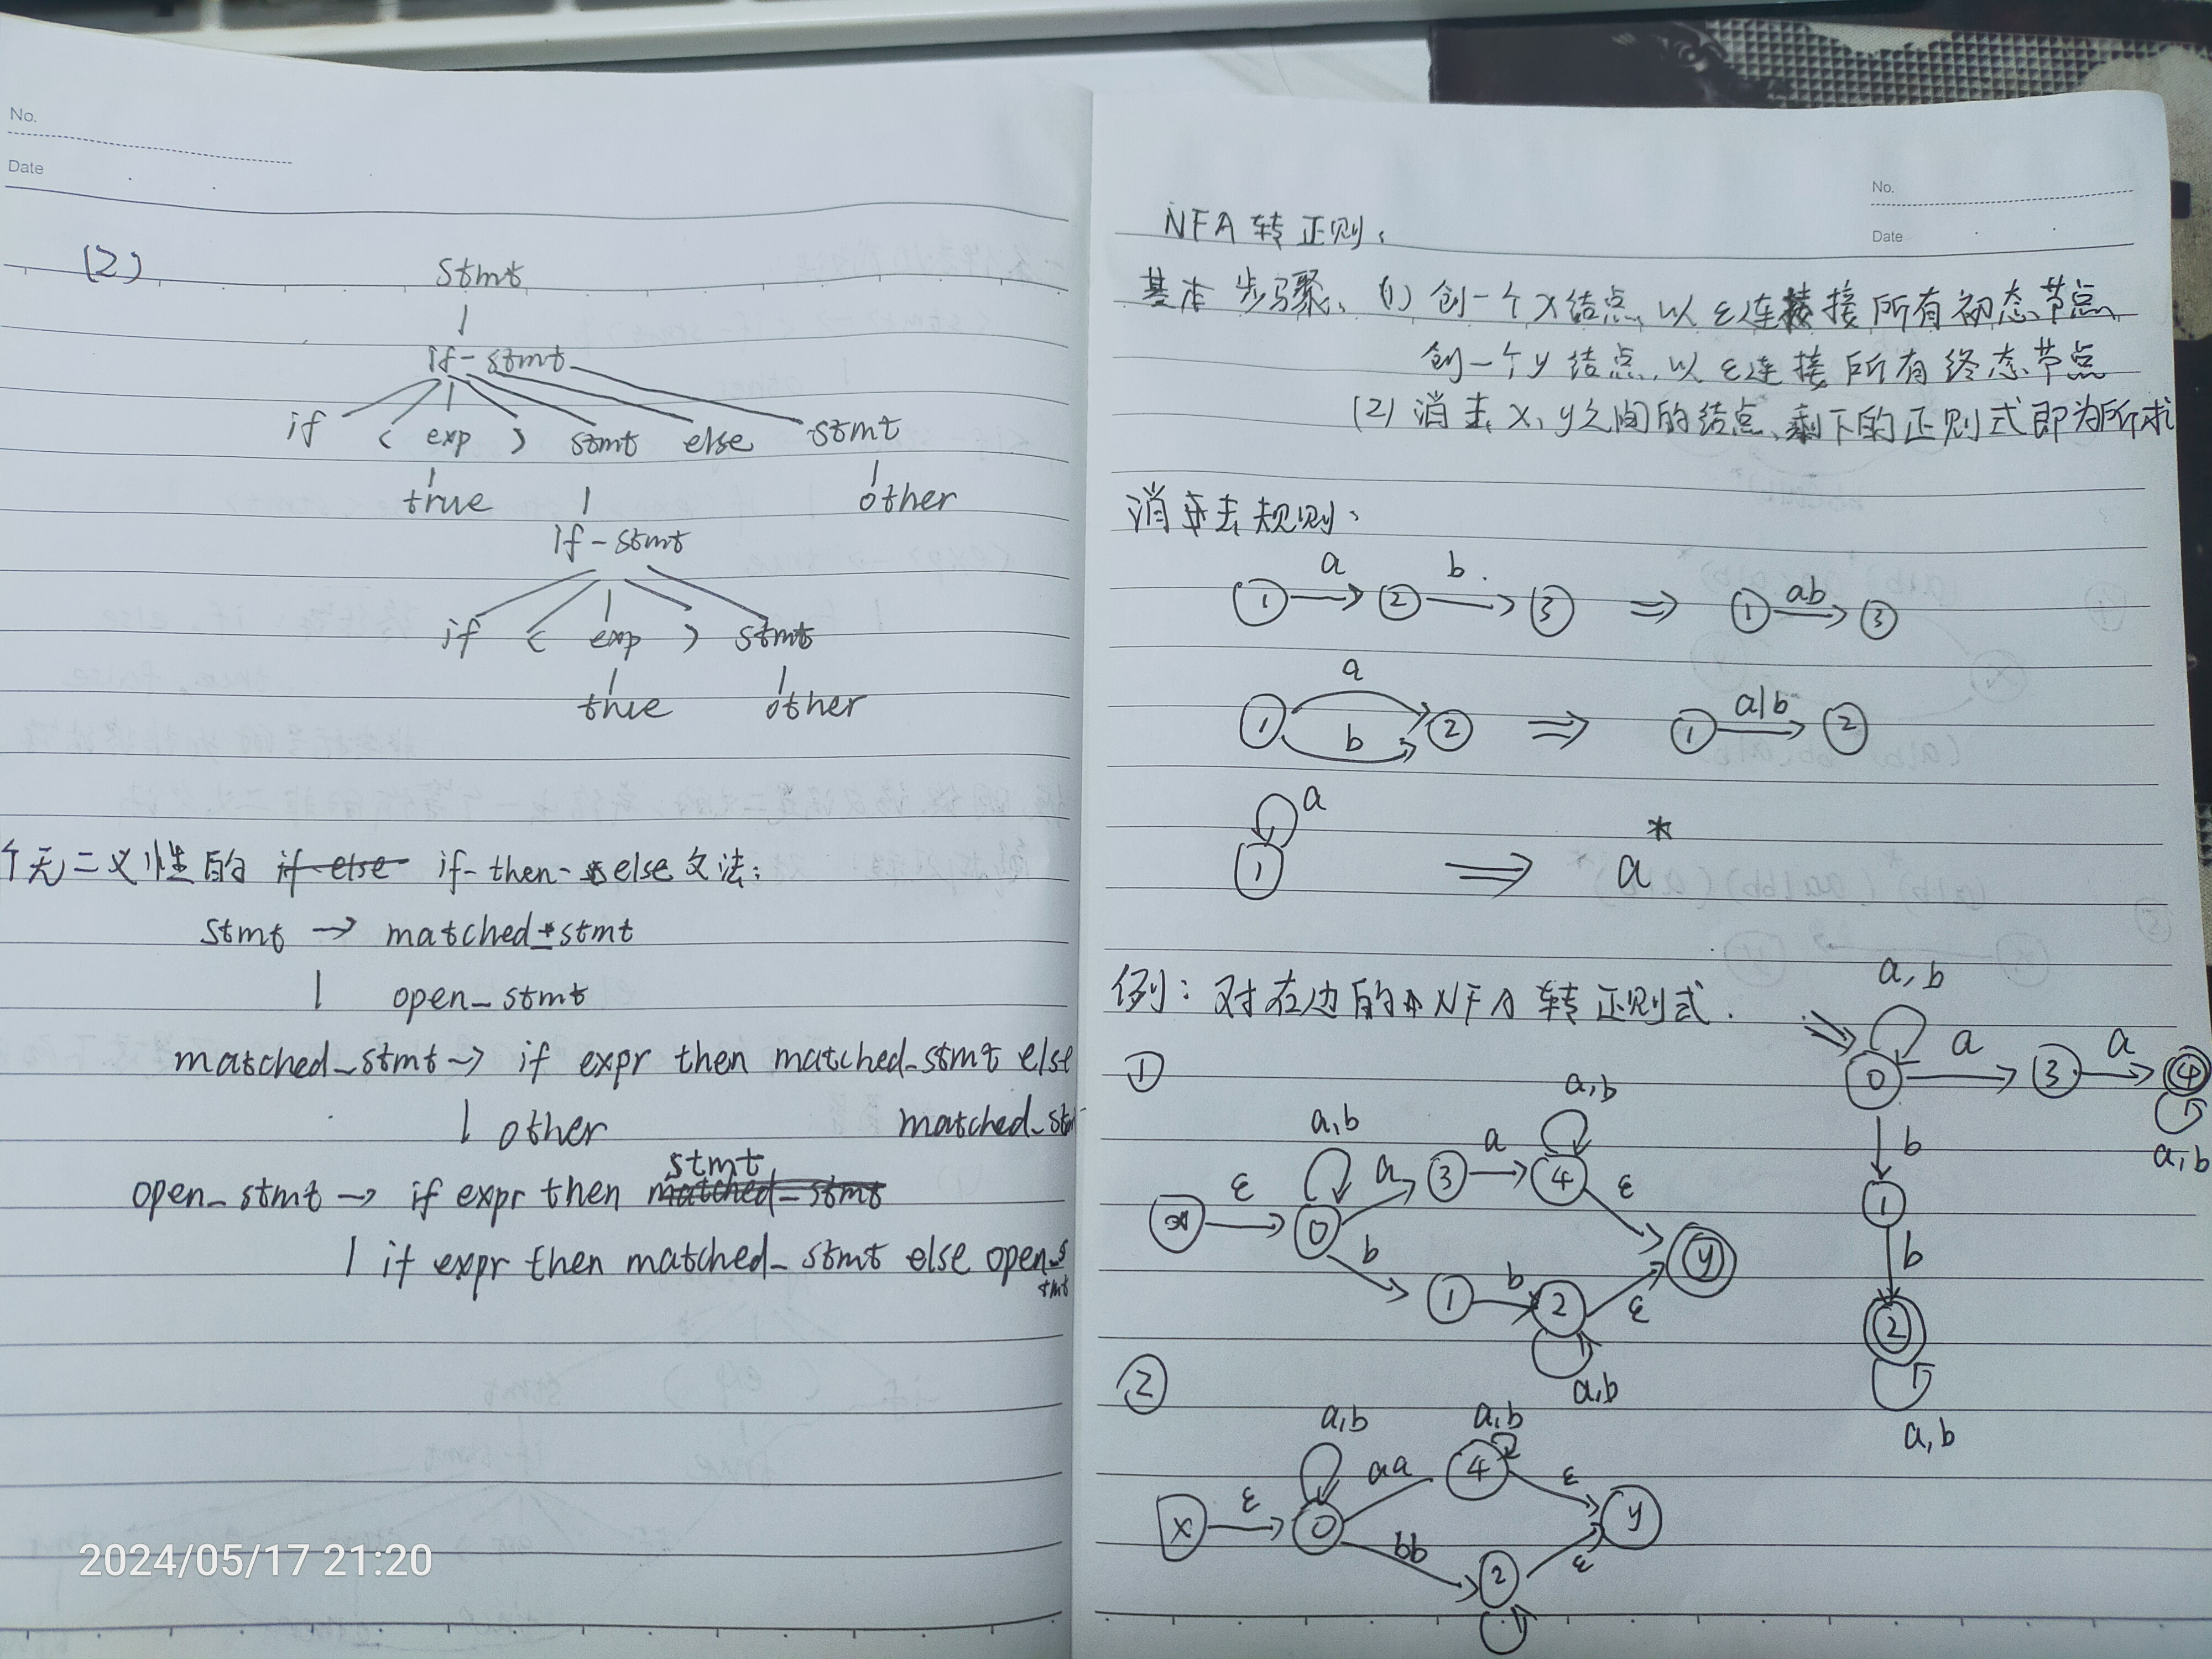 No.
Date
(2)
stmt
if-stmt
if ( exp ) stmt else stmt
true other
if-stmt
if ( exp ) stmt
true other
个无二义性的 if-then-else文法:
stmt → matched_stmt
| open_stmt
matched_stmt → if expr then matched_stmt else
| other matched_stmt
open_stmt → if expr then stmt
| if expr then matched_stmt else open_stmt
2024/05/17 21:20
No.
Date
NFA 转 正则:
基本步骤、(1) 创一个X结点,以ε连接所有初态节点,
创一个y结点,以ε连接所有终态节点
(2) 消去x,y之间的结点,剩下的正则式即为所求
消去规则:
a b
1 → 2 → 3 ⇒ 1 ab → 3
a
1 b 2 ⇒ 1 a|b → 2
a
1 ⇒ a*
例: 对右边的NFA转正则式.
a,b
0 a → 3 a → 4
a,b
b
1
b
2
a,b
①
a,b a,b
x ε → 0 a 3 a → 4 ε y
b 1 b 2 ε
a,b
②
a,b a,b
x ε → 0 aa 4 ε y
bb 2 ε